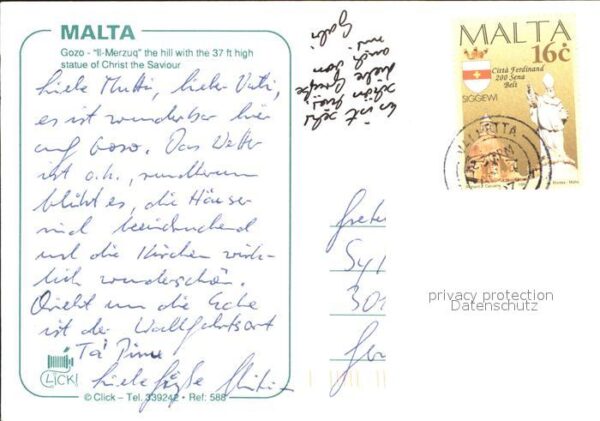 MALTA
Gozo - "Il-Merzuq" the hill with the 37 ft high
statue of Christ the Saviour
Liebe Mutti, lieber Vati,
es ist wunderbar hier
auf Gozo. Das Wetter
ist o.k., rundherum
blüht es, die Häuser
sind beeindruckend
und die Kirchen wirk-
lich wunderschön.
Direkt um die Ecke
ist der Wallfahrtsort
Ta' Pinu
Liebe Grüße
CLICK!
© Click - Tel. 339242 • Ref: 588
Es ist sehr
schön hier
viele Grüße
auch von
mir
Gabi
MALTA
16c
Città Ferdinand
200 Sena
Belt
SIĠĠIEWI
VALLETTA
privacy protection
Datenschutz